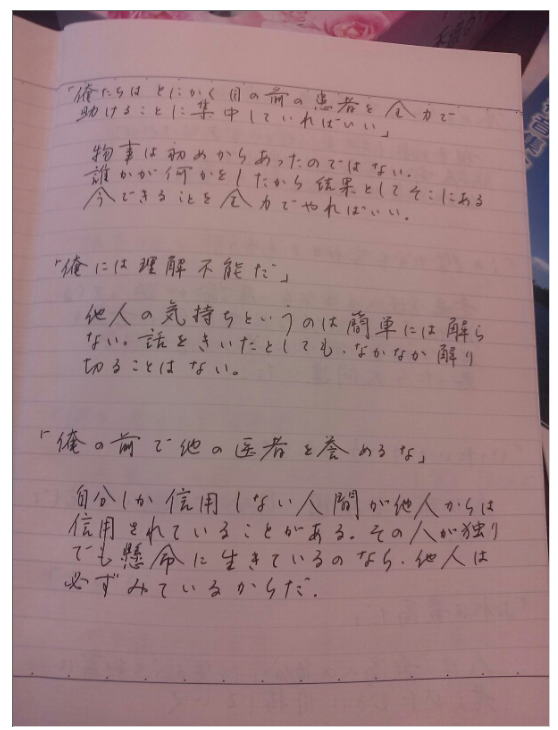 「俺たちはとにかく目の前の患者を全力で
助けることに集中していればいい」
物事は初めからあったのではない。
誰かが何かをしたから結果としてそこにある
今できることを全力でやればいい。
「俺には理解不能だ」
他人の気持ちというのは簡単には解ら
ない。話をきいたとしても、なかなか解り
切ることはない。
「俺の前で他の医者を誉めるな」
自分しか信用しない人間が他人からは
信用されていることがある。その人が独り
でも懸命に生きているのなら、他人は
必ずみているからだ.